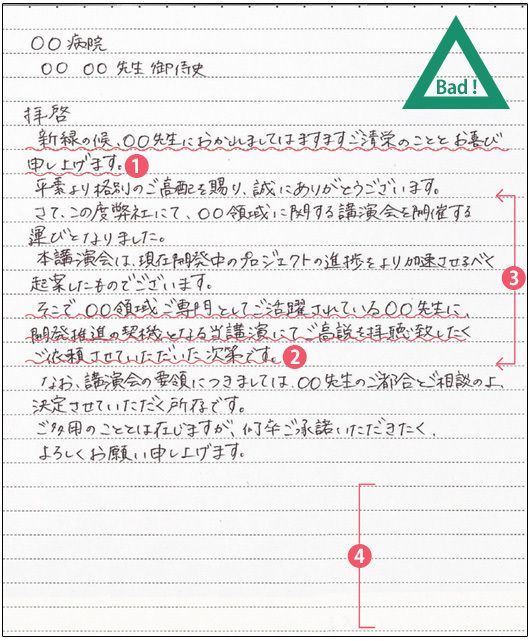 〇〇病院
〇〇 〇〇先生御侍史
Bad!
拝啓
新緑の候、〇〇先生におかれましてはますますご清栄のこととお喜び
申し上げます。 1
平素より格別のご高配を賜り、誠にありがとうございます。
さて、この度弊社にて、〇〇領域に関する講演会を開催する
運びとなりました。
本講演会は、現在開発中のプロジェクトの進捗をより加速させるべく
起案したものでございます。
3
そこで〇〇領域ご専門としてご活躍されている〇〇先生に、
開発推進の契機となる当講演にてご高説を拝聴致したく
ご依頼させていただいた次第です。 2
なお、講演会の要領につきましては、〇〇先生のご都合とご相談の上、
決定させていただく所存です。
ご多用のこととは存じますが、何卒ご承諾いただきたく、
よろしくお願い申し上げます。
4